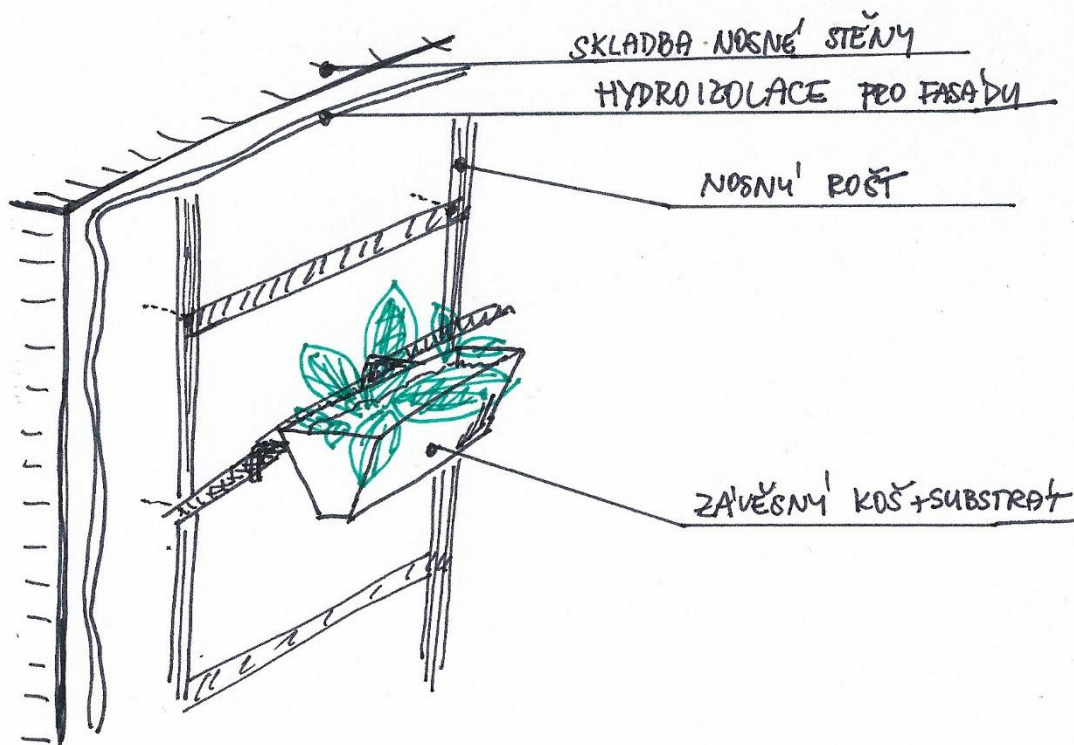 SKLADBA NOSNÉ STĚNY
HYDROIZOLACE PRO FASÁDU
NOSNÝ ROŠT
ZÁVĚSNÝ KOŠ+SUBSTRÁT